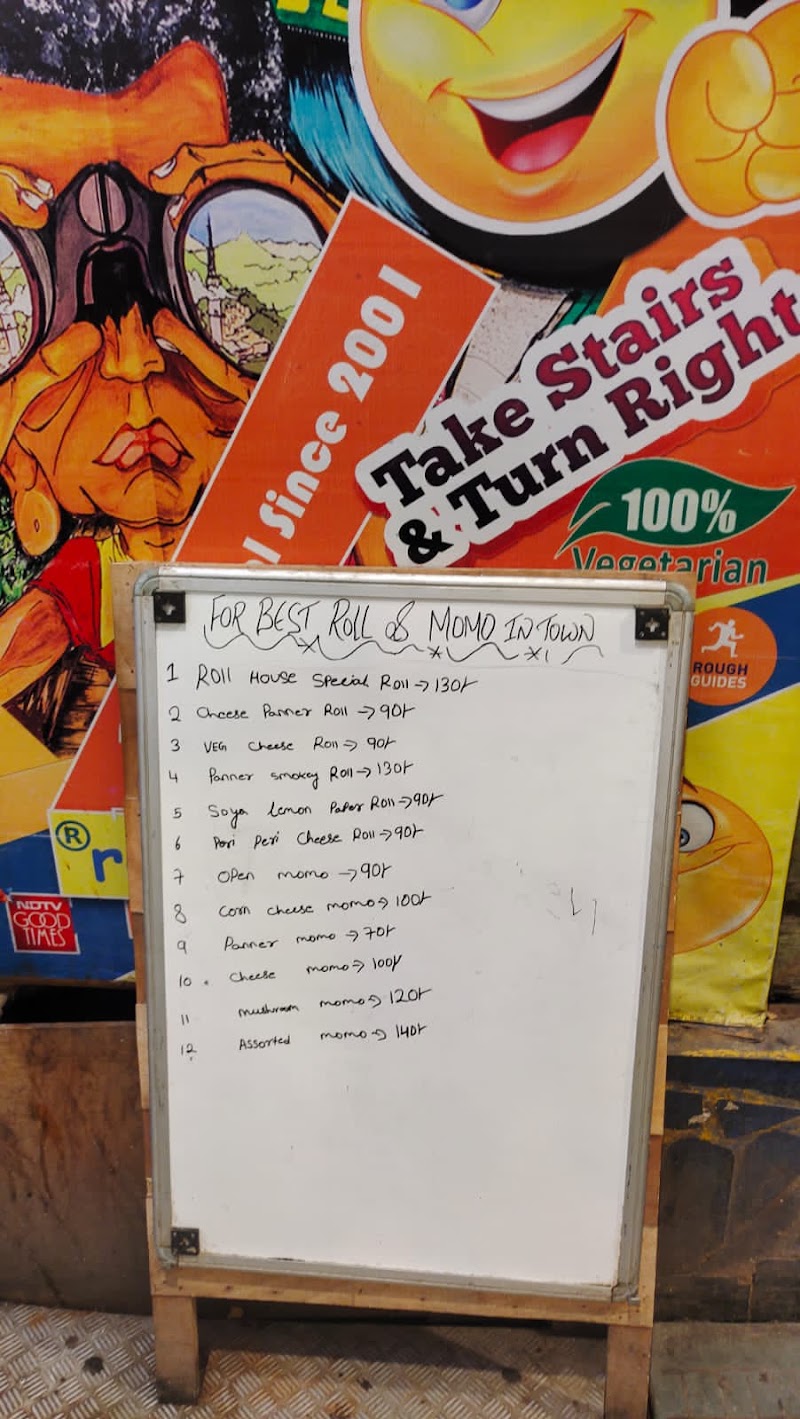 l Since 2001
Take Stairs
& Turn Right
100%
Vegetarian
ROUGH
GUIDES
FOR BEST ROLL & MOMO IN TOWN
1 ROll HOUSE SPecial Roll → 130/-
2 Cheese Panner Roll → 90/-
3 VEG cheese Roll → 90/-
4 Panner smokey Roll → 130/-
5 Soya lemon PaPer Roll → 90/-
6 Peri Peri Cheese Roll → 90/-
7 OPen momo → 90/-
8 Corn cheese momo → 100/-
9 Panner momo → 70/-
10 . Cheese momo → 100/-
11 mushroom momo → 120/-
12 Assorted momo → 140/-
® r
NDTV
GOOD
TIMES